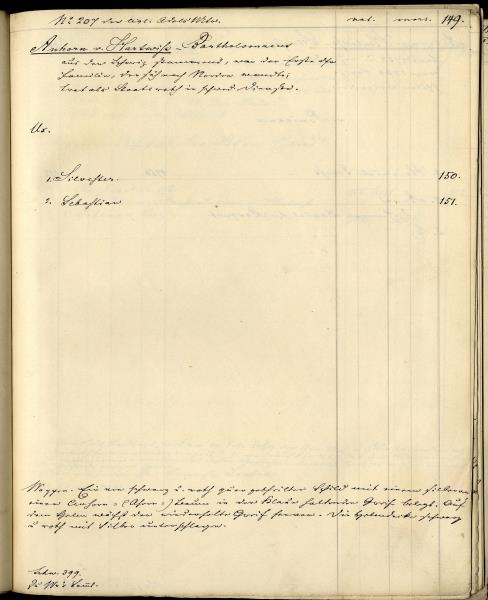 No 207 der livl. Adels Matr. nat. mort. 149.
Anhorn v. Hartwiß - Bartholomaeus
aus der Schweiz stammend, war der Erste dsr
Familie, der sich nach Norden wandte;
trat als Staatsrath in schwed. Dienste.
Ux.
1. Silvester. 150.
2. Sebastian 151.
Wappen. Ein von schwarz u. roth quer getheilter Schild mit einem silbernen
einen Anhorn- (Ahorn-) Baum in der Klaue haltenden Greif belegt. Auf
dem Helm wächst der wiederholte Greif hervor. Die Helmdecke schwarz
u roth mit Silber unterschlagen.
399.